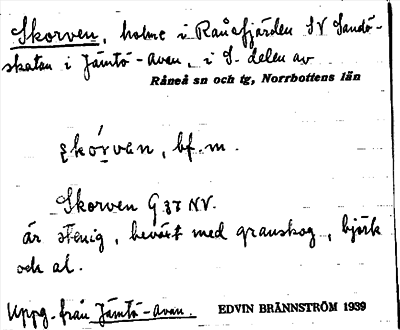 Skorven, holme i Rånefjärden SV Sandö-
skatan i Jämtö-aven, i S. delen av
Råneå sn och tg, Norrbottens län
skó̀rvan, bf. m.
Skorven G 37 NV.
är stenig, bevuxt med granskog, björk
och al.
Uppg. från Jämtö-avan. EDVIN BRÄNNSTRÖM 1939